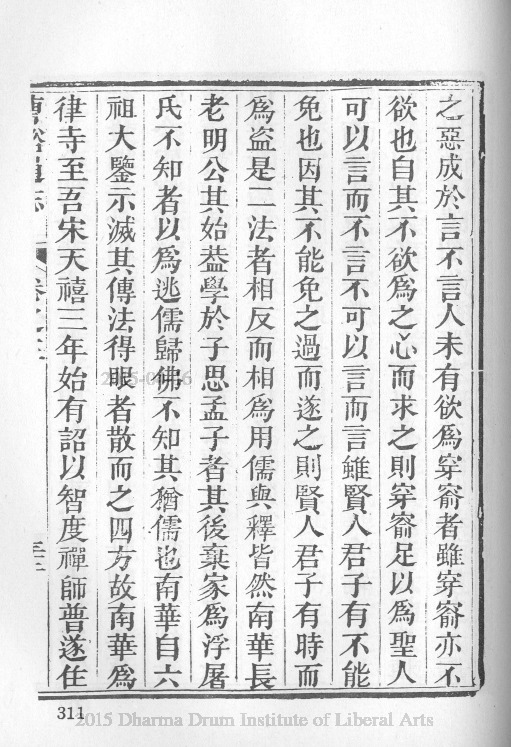 之惡成於言不言人未有欲為穿窬者雖穿窬亦不
欲也自其不欲為之心而求之則穿窬足以為聖人
可以言而不言不可以言而言雖賢人君子有不能
免也因其不能免之過而遂之則賢人君子有時而
為盜是二法者相反而相為用儒與釋皆然南華長
老明公其始葢學於子思孟子者其後棄家為浮屠
氏不知者以為逃儒歸佛不知其猶儒也南華自六
祖大鑒示滅其傳法得眼者散而之四方故南華為
律寺至吾宋天禧三年始有詔以智度禪師普遂住
曹谿通志
311
2015 Dharma Drum Institute of Liberal Arts